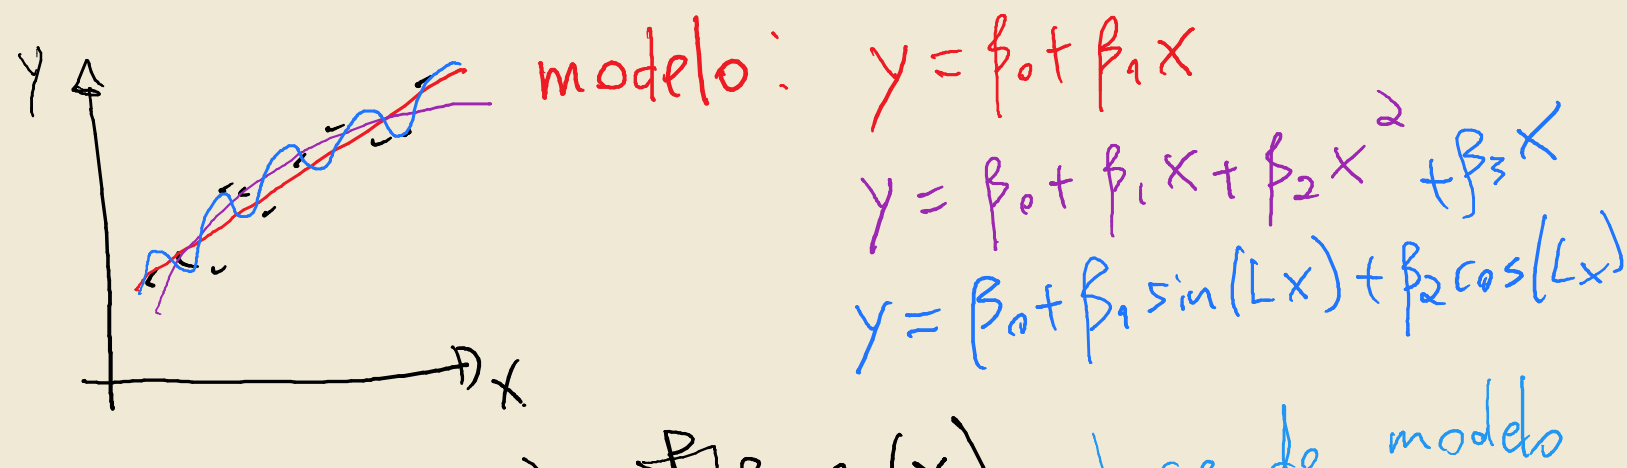 Y
modelo: y = β₀ + β₁x
y = β₀ + β₁x + β₂x² + β₃x
y = β₀ + β₁ sin(Lx) + β₂ cos(Lx)
x
(x) de modelo